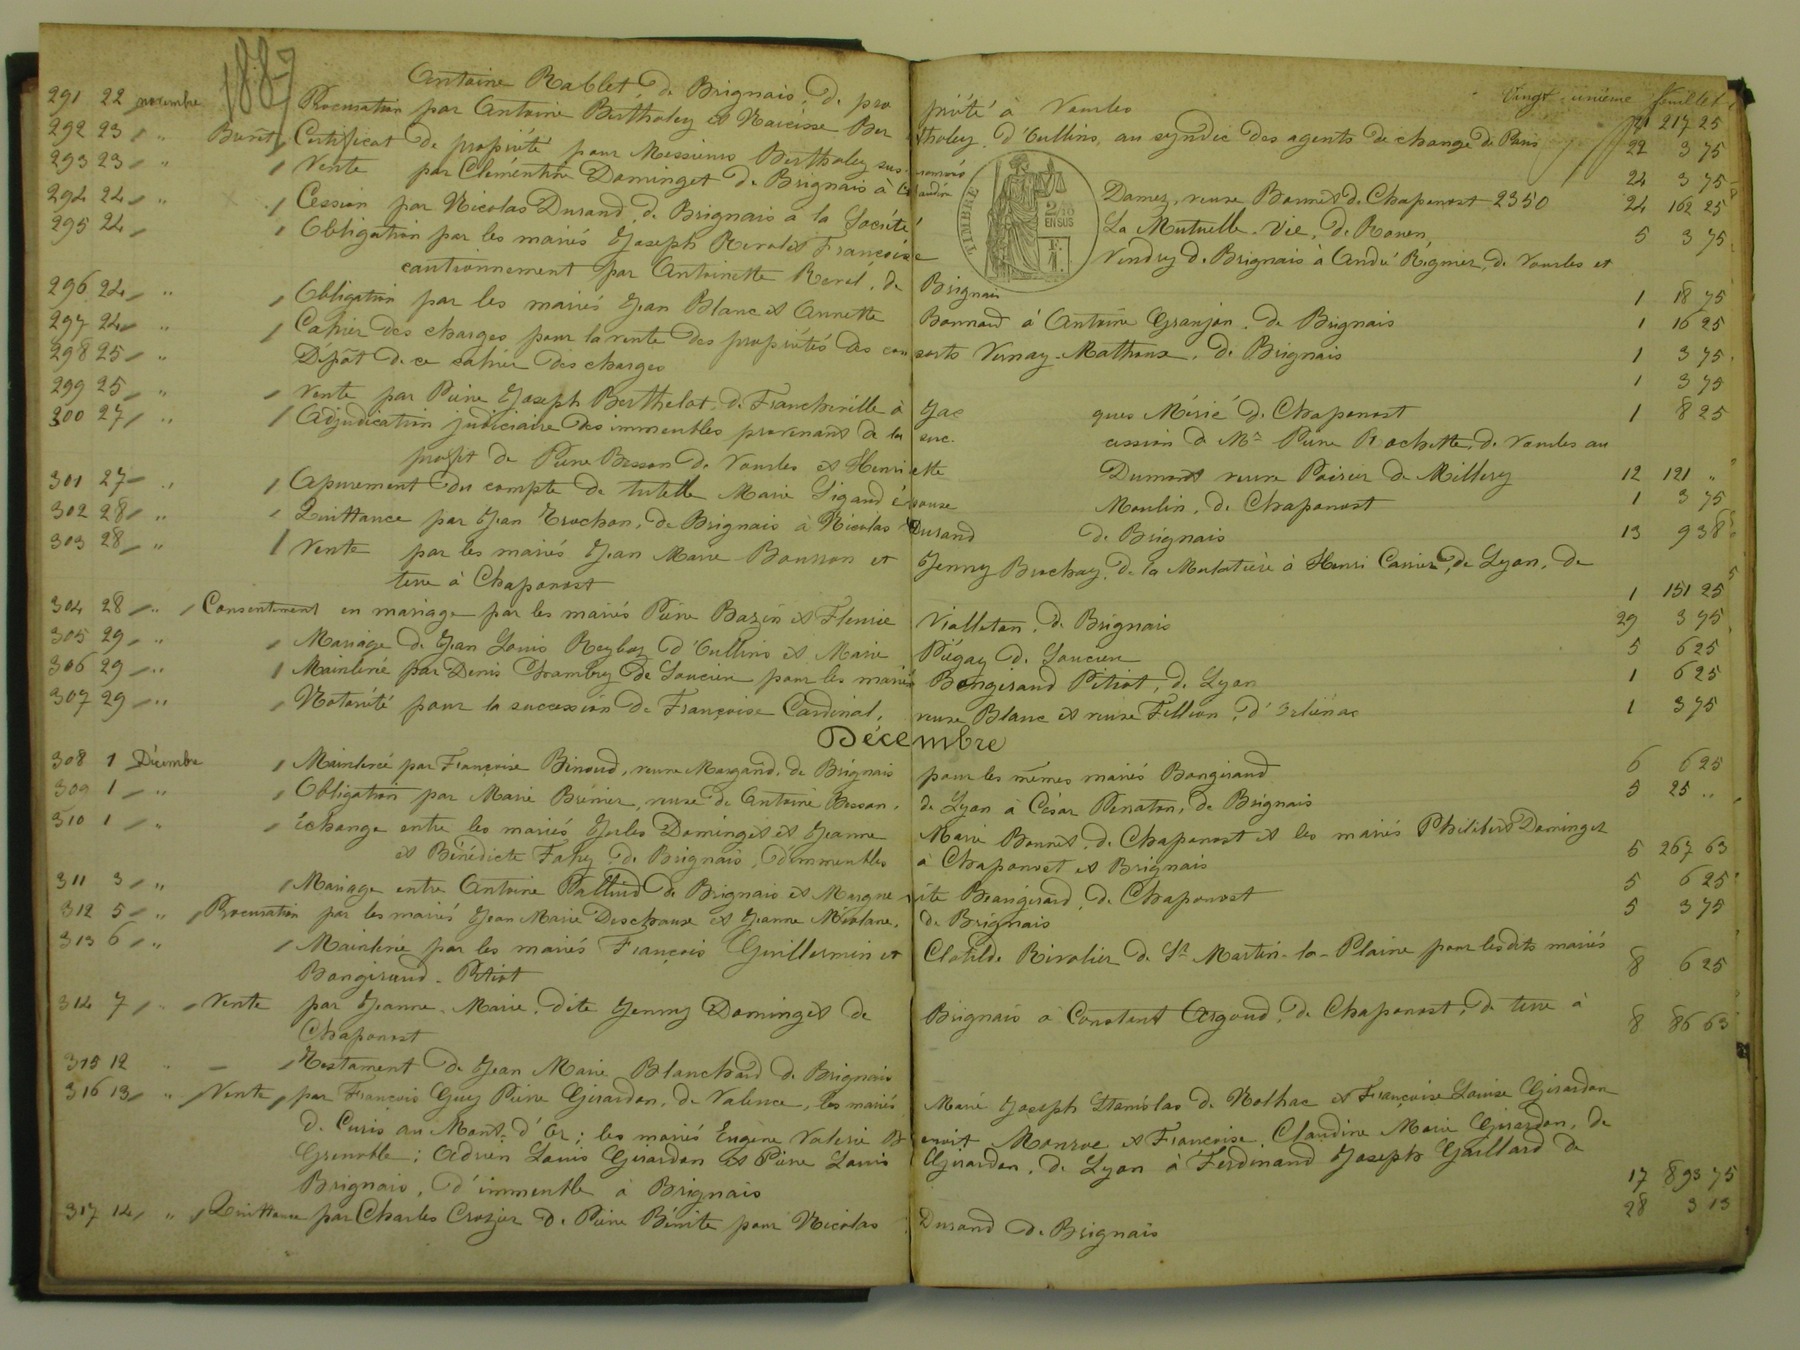 1887
Vingt-unième feuillet
Antoine Rablet de Brignais, de pro priété à Vourles 217 25
291 22 novembre Procuration par Antoine Bertholey et Narcisse Ber tholey, d'Oullins, au syndic des agents de change de Paris 22 3 75
292 23 " Brevet Certificat de propriété pour Messieurs Bertholey sus nommés 24 3 75
293 23 " Vente par Clémentine Dominget de Brignais à Damez, veuve Bonnet de Chaponost 2350 24 162 25
294 24 " Cession par Nicolas Durand, de Brignais a la Société La Mutuelle-Vie, de Rouen 5 3 75
295 24 Obligation par les mariés Joseph Revol et Françoise Vendry de Brignais à André Régnier, de Vourles et
cautionnement par Antoinette Revol, de Brignais 1 18 75
296 24 " Obligation par les mariés Jean Blanc et Annette Bonnard à Antoine Granjon, de Brignais 1 16 25
297 24 " Cahier des charges pour la vente des propriétés des con sorts Vernay-Mathoux, de Brignais 1 3 75
298 25 " Dépôt de ce cahier des charges 1 3 75
299 25 " Vente par Pierre Joseph Berthelot, de Francheville à Jac ques Mérié de Chaponost 1 8 25
300 27 " Adjudication judiciaire des immeubles provenant de la suc cession de Mr Pierre Rochette, de Vourles au
profit de Pierre Besson de Vourles et Henri ette Dumont veuve Poirier de Millery 12 121 "
301 27 " Apurement du compte de tutelle Marie Ligand épouse Moulin, de Chaponost 1 3 75
302 28 " Quittance par Jean Trochon, de Brignais à Nicolas Durand de Brignais 13 9 38
303 28 " Vente par les mariés Jean Marie Bourron et Jenny Brochay, de la Mulatière à Henri Carrier, de Lyon, de
terre à Chaponost 1 151 25
304 28 " Consentement en mariage par les mariés Pierre Bazin et Fleurie Vialleton, de Brignais 29 3 75
305 29 " Mariage de Jean Louis Reyboz d'Oullins et Marie Piégay de Soucieu 5 6 25
306 29 " Mainlevée par Denis Chambry de Soucieu pour les mariés Bongiraud Pitiot, de Lyon 1 6 25
307 29 " Notoriété pour la succession de Françoise Cardinal, veuve Blanc et veuve Fillion, d'Orliénas 1 3 75
Décembre
308 1 Décembre Mainlevée par Françoise Binoud, veuve Morgand, de Brignais pour les mêmes mariés Bongiraud 6 6 25
309 1 " Obligation par Marie Brénier, veuve de Antoine Besson, de Lyon à César Penaton, de Brignais 5 25 "
310 1 " Echange entre les mariés Jules Dominget et Jeanne Marie Bonnet, de Chaponost et les mariés Philibert Dominget
et Bénédicte Fahy, de Brignais, d'immeubles à Chaponost et Brignais 5 267 63
311 3 " Mariage entre Antoine Palluid de Brignais et Margue rite Beaugirard, de Chaponost 5 6 25
312 5 " Procuration par les mariés Jean Marie Deschaux et Jeanne Miolane, de Brignais 5 3 75
313 6 " Mainlevée par les mariés François Guillermin et Clotilde Rivolier de St Martin-la-Plaine pour lesdits mariés
Bongiraud-Pitiot 8 6 25
314 7 " Vente par Jeanne-Marie, dite Jenny Dominget de Brignais à Constant Argoud, de Chaponost, de terre à
Chaponost 8 86 63
315 12 " Testament de Jean Marie Blanchard de Brignais
316 13 " Vente par François Guy Pierre Girardon, de Valence, les mariés Marie Joseph Stanislas de Nolhac et Françoise Louise Girardon
de Curis au Mont-d'Or; les mariés Eugène Valerie B enoit Monroe et Françoise Claudine Marie Girardon, de
Grenoble; Adrien Louis Girardon et Pierre Louis Girardon, de Lyon à Ferdinand Joseph Gaillard de
Brignais, d'immeuble à Brignais 17 893 75
317 14 " Quittance par Charles Crozier de Pierre Bénite pour Nicolas Durand de Brignais 28 3 13
TIMBRE
2/10 EN SUS
F.